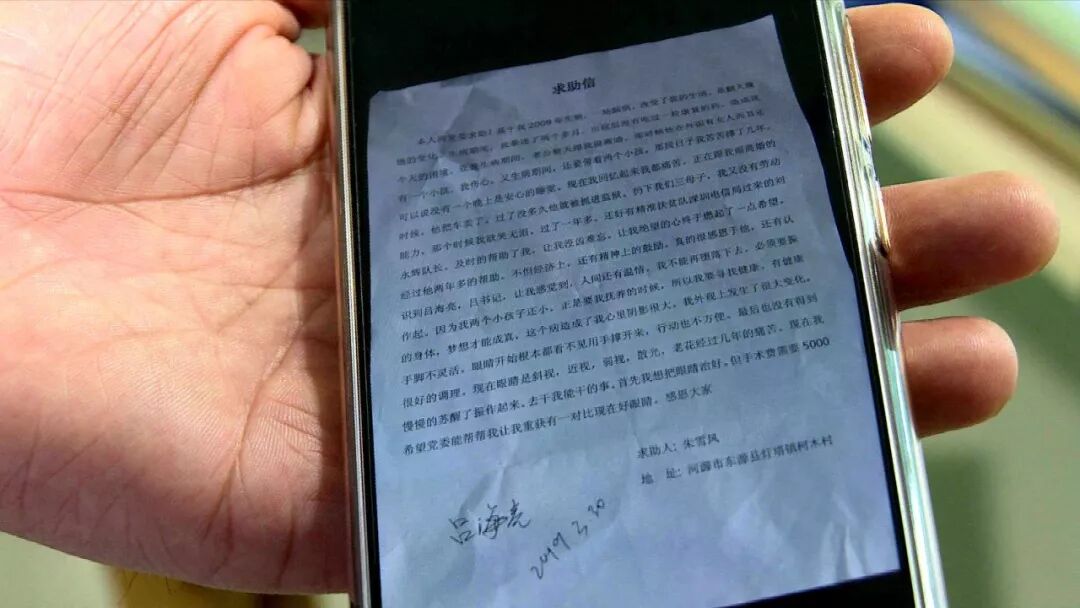 求助信
本人向党委求助！基于我2009年生病，脑病，改变了我的生活，是翻天覆
地的变化，生病期间，我昏迷了两个多月，出院后没有吃过一粒康复的药，造成我
个人的困境。在我生病期间，老公整天跟我提离婚，那时候他在外面有女人而且还
有一个小孩，我伤心，又生病期间，还要带着两个小孩。那段日子我苦苦撑了几年，
可以说没有一个晚上是安心的睡觉，现在我回忆起来我都痛苦，正在跟我闹离婚的
时候，他把车卖了，过了没多久他就被抓进监狱，扔下我们三母子，我又没有劳动
能力，那个时候我欲哭无泪，过了一年多，还好有精准扶贫队深圳电信局过来的刘
永辉队长，及时的帮助了我，让我没齿难忘，让我绝望的心终于燃起了一点希望，
经过他两年多的帮助，不但经济上，还有精神上的鼓励，真的很感恩于他，还有认
识到吕海亮，吕书记，让我感觉到，人间还有温情，我不能再堕落下去，必须要振
作起。因为我两个小孩子还小，正是要我抚养的时候，所以我要寻找健康，有健康
的身体，梦想才能成真，这个病造成了我心里阴影很大，我外观上发生了很大变化，
手脚不灵活，眼睛开始根本都看不见用手撑开来，行动也不方便。最后也没有得到
很好的调理。现在眼睛是斜视，近视，弱视，散光，老花经过几年的痛苦，现在我
慢慢的苏醒了振作起来。去干我能干的事。首先我想把眼睛治好。但手术费需要5000
希望党委能帮帮我让我重获有一对比现在好眼睛。感恩大家
求助人：朱雪风
地 址：河源市东源县灯塔镇柯木村
吕海亮
2019 3 20